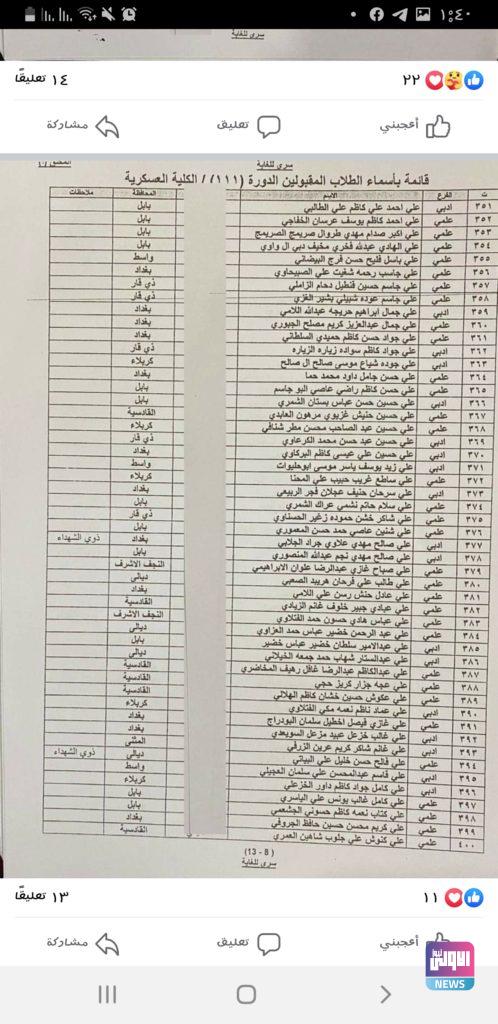 ١:٤٠
سري للغاية
٢٢
١٤ تعليقًا
أعجبني
تعليق
مشاركة
سري للغاية
قائمة بأسماء الطلاب المقبولين الدورة (١١١) / الكلية العسكرية
ت الفرع الاسم المحافظة ملاحظات
٣٥١ ادبي علي احمد علي كاظم علي الطالبي بابل
٣٥٢ علمي علي احمد كاظم يوسف عرسان الخفاجي بابل
٣٥٣ علمي علي اكبر صدام مهدي طروال صريمح الصريمح بابل
٣٥٤ علمي علي الهادي عبدالله فخري مخيف دبي ال واوي بابل
٣٥٥ علمي علي باسل فليح حسن فرج البيضاني واسط
٣٥٦ علمي علي جاسب رحمه شغيت علي الصبيحاوي بغداد
٣٥٧ علمي علي جاسم حسين فنطيل دحام الزاملي ذي قار
٣٥٨ علمي علي جاسم عوده شبيلي بشير الغزي ذي قار
٣٥٩ ادبي علي جمال ابراهيم حريجه عبدالله اللامي بغداد
٣٦٠ علمي علي جمال عبدالعزيز كريم مصلح الجبوري بغداد
٣٦١ علمي علي جواد حسن كاظم حميدي السلطاني بابل
٣٦٢ ادبي علي جواد كاظم سواده زياره الزياره ذي قار
٣٦٣ ادبي علي جوده شياع موسى صالح ال صالح كربلاء
٣٦٤ علمي علي حسن جامل داود محمد حما بغداد
٣٦٥ علمي علي حسن كاظم راضي عاصي البو جاسم بابل
٣٦٦ ادبي علي حسين حسن عباس بستان الشمري بابل
٣٦٧ علمي علي حسين حنيش غزيوي مرهون العابدي القادسية
٣٦٨ علمي علي حسين عبد الصاحب محسن مطر شنافي كربلاء
٣٦٩ ادبي علي حسين عبد حسن محمد الكرعاوي ذي قار
٣٧٠ ادبي علي حسين علي عيسى كاظم البركاوي بغداد
٣٧١ ادبي علي زيد يوسف ياسر موسى ابوحليوات واسط
٣٧٢ علمي علي ساطع غريب حبيب علي المحنا كربلاء
٣٧٣ ادبي علي سرحان حنيف عجلان فجر الربيعي بغداد
٣٧٤ علمي علي سلام حاتم نشمي عراك الشمري بابل
٣٧٥ علمي علي شاكر خشن حموده زغير الحسناوي ذي قار
٣٧٦ علمي علي شنين عاصي حمد حسن المعموري بابل
٣٧٧ ادبي علي صالح مهدي علاوي جراد الجلابي بغداد ذوي الشهداء
٣٧٨ ادبي علي صالح مهدي نجم عبدالله المنصوري بابل
٣٧٩ علمي علي صباح غازي عبدالرضا علوان الابراهيمي النجف الاشرف
٣٨٠ علمي علي طالب علي فرحان هربد الصعبي ديالى
٣٨١ علمي علي عادل حنش رسن علي اللامي بغداد
٣٨٢ علمي علي عبادي جبير خلوف غانم الزيادي القادسية
٣٨٣ علمي علي عباس هادي حسون حمد الفتلاوي النجف الاشرف
٣٨٤ علمي علي عبد الرحمن خضير عباس حمد العزاوي ديالى
٣٨٥ ادبي علي عبدالامير سلطان خضير عباس خضير بابل
٣٨٦ ادبي علي عبدالستار شهاب حمد جمعه الخيلاني ديالى
٣٨٧ علمي علي عبدالكاظم عبدالرضا غافل رهيف المخاضري القادسية
٣٨٨ علمي علي عجه جزار كريز حجي القادسية
٣٨٩ علمي علي عكوش حسين خشان كاظم الهلالي القادسية
٣٩٠ ادبي علي عماد ناظم نعمه مكي الفتلاوي كربلاء
٣٩١ علمي علي غازي فيصل اخطيل سلمان البودراج بغداد
٣٩٢ ادبي علي غالب خزعل عبيد مزعل السويعدي بغداد
٣٩٣ ادبي علي غانم شاكر كريم عرين الزرفي المثنى
٣٩٤ علمي علي فالح حسن خليل علي البياتي ديالى ذوي الشهداء
٣٩٥ ادبي علي قاسم عبدالمحسن علي سلمان العجيلي واسط
٣٩٦ ادبي علي كامل جواد كاظم داور الخزعلي كربلاء
٣٩٧ علمي علي كامل غالب يونس علي الياسري بابل
٣٩٨ علمي علي كتاب نعمه كاظم حسوني الجشعمي بابل
٣٩٩ علمي علي كريم محسن حسين حافظ الجروفي بغداد
٤٠٠ علمي علي كنوش علي جلوب شاهين العمري القادسية
(13 - 8)
سري للغاية
١١
١٣ تعليقًا
أعجبني
تعليق
مشاركة
الاولى نيوز
NEWS